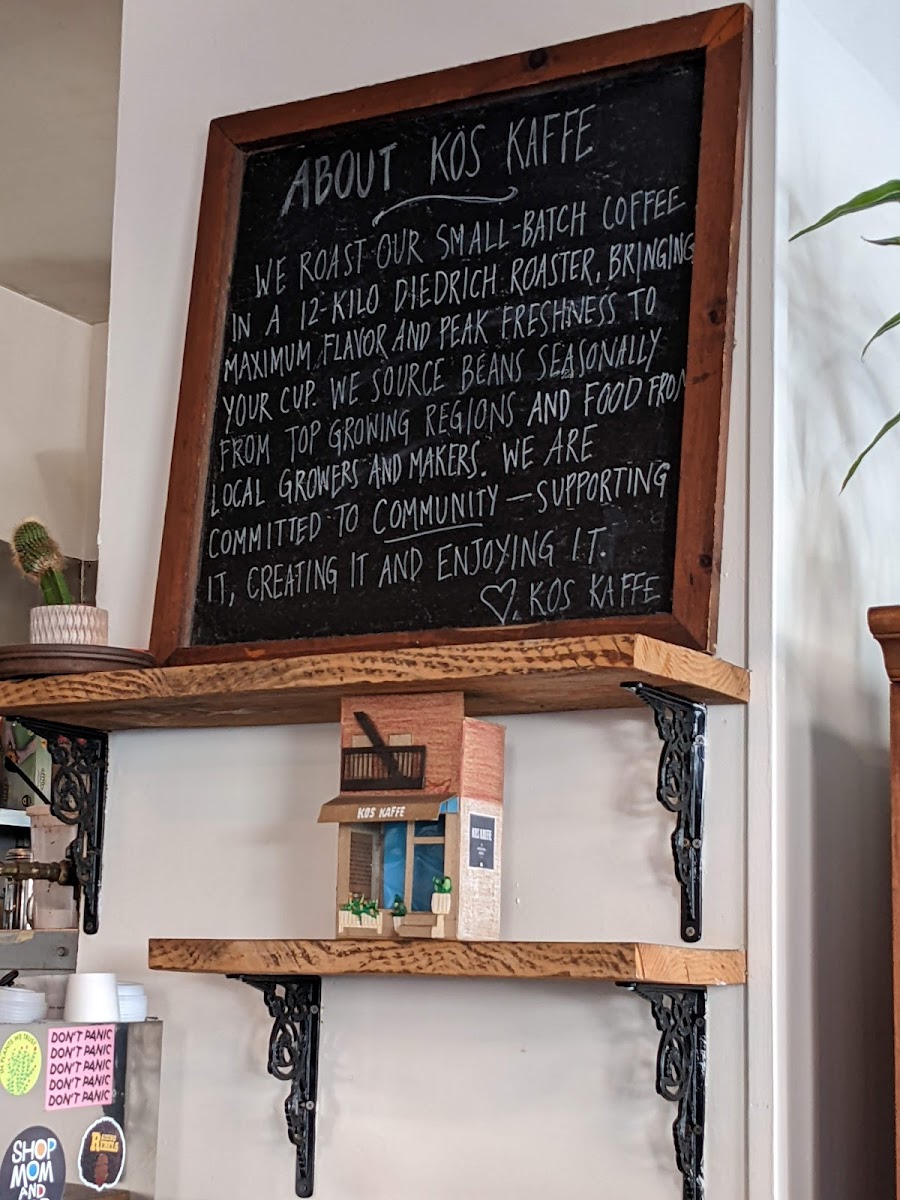 ABOUT KÖS KAFFE
WE ROAST OUR SMALL-BATCH COFFEE
IN A 12-KILO DIEDRICH ROASTER, BRINGING
MAXIMUM FLAVOR AND PEAK FRESHNESS TO
YOUR CUP. WE SOURCE BEANS SEASONALLY
FROM TOP GROWING REGIONS AND FOOD FROM
LOCAL GROWERS AND MAKERS. WE ARE
COMMITTED TO COMMUNITY — SUPPORTING
IT, CREATING IT AND ENJOYING IT.
♡, KOS KAFFE
KOS KAFFE
KOS KAFFE
IN PLANTS WE TRUST
DON'T PANIC
DON'T PANIC
DON'T PANIC
DON'T PANIC
DON'T PANIC
SHOP
MOM
AND
RAISING
REBELS